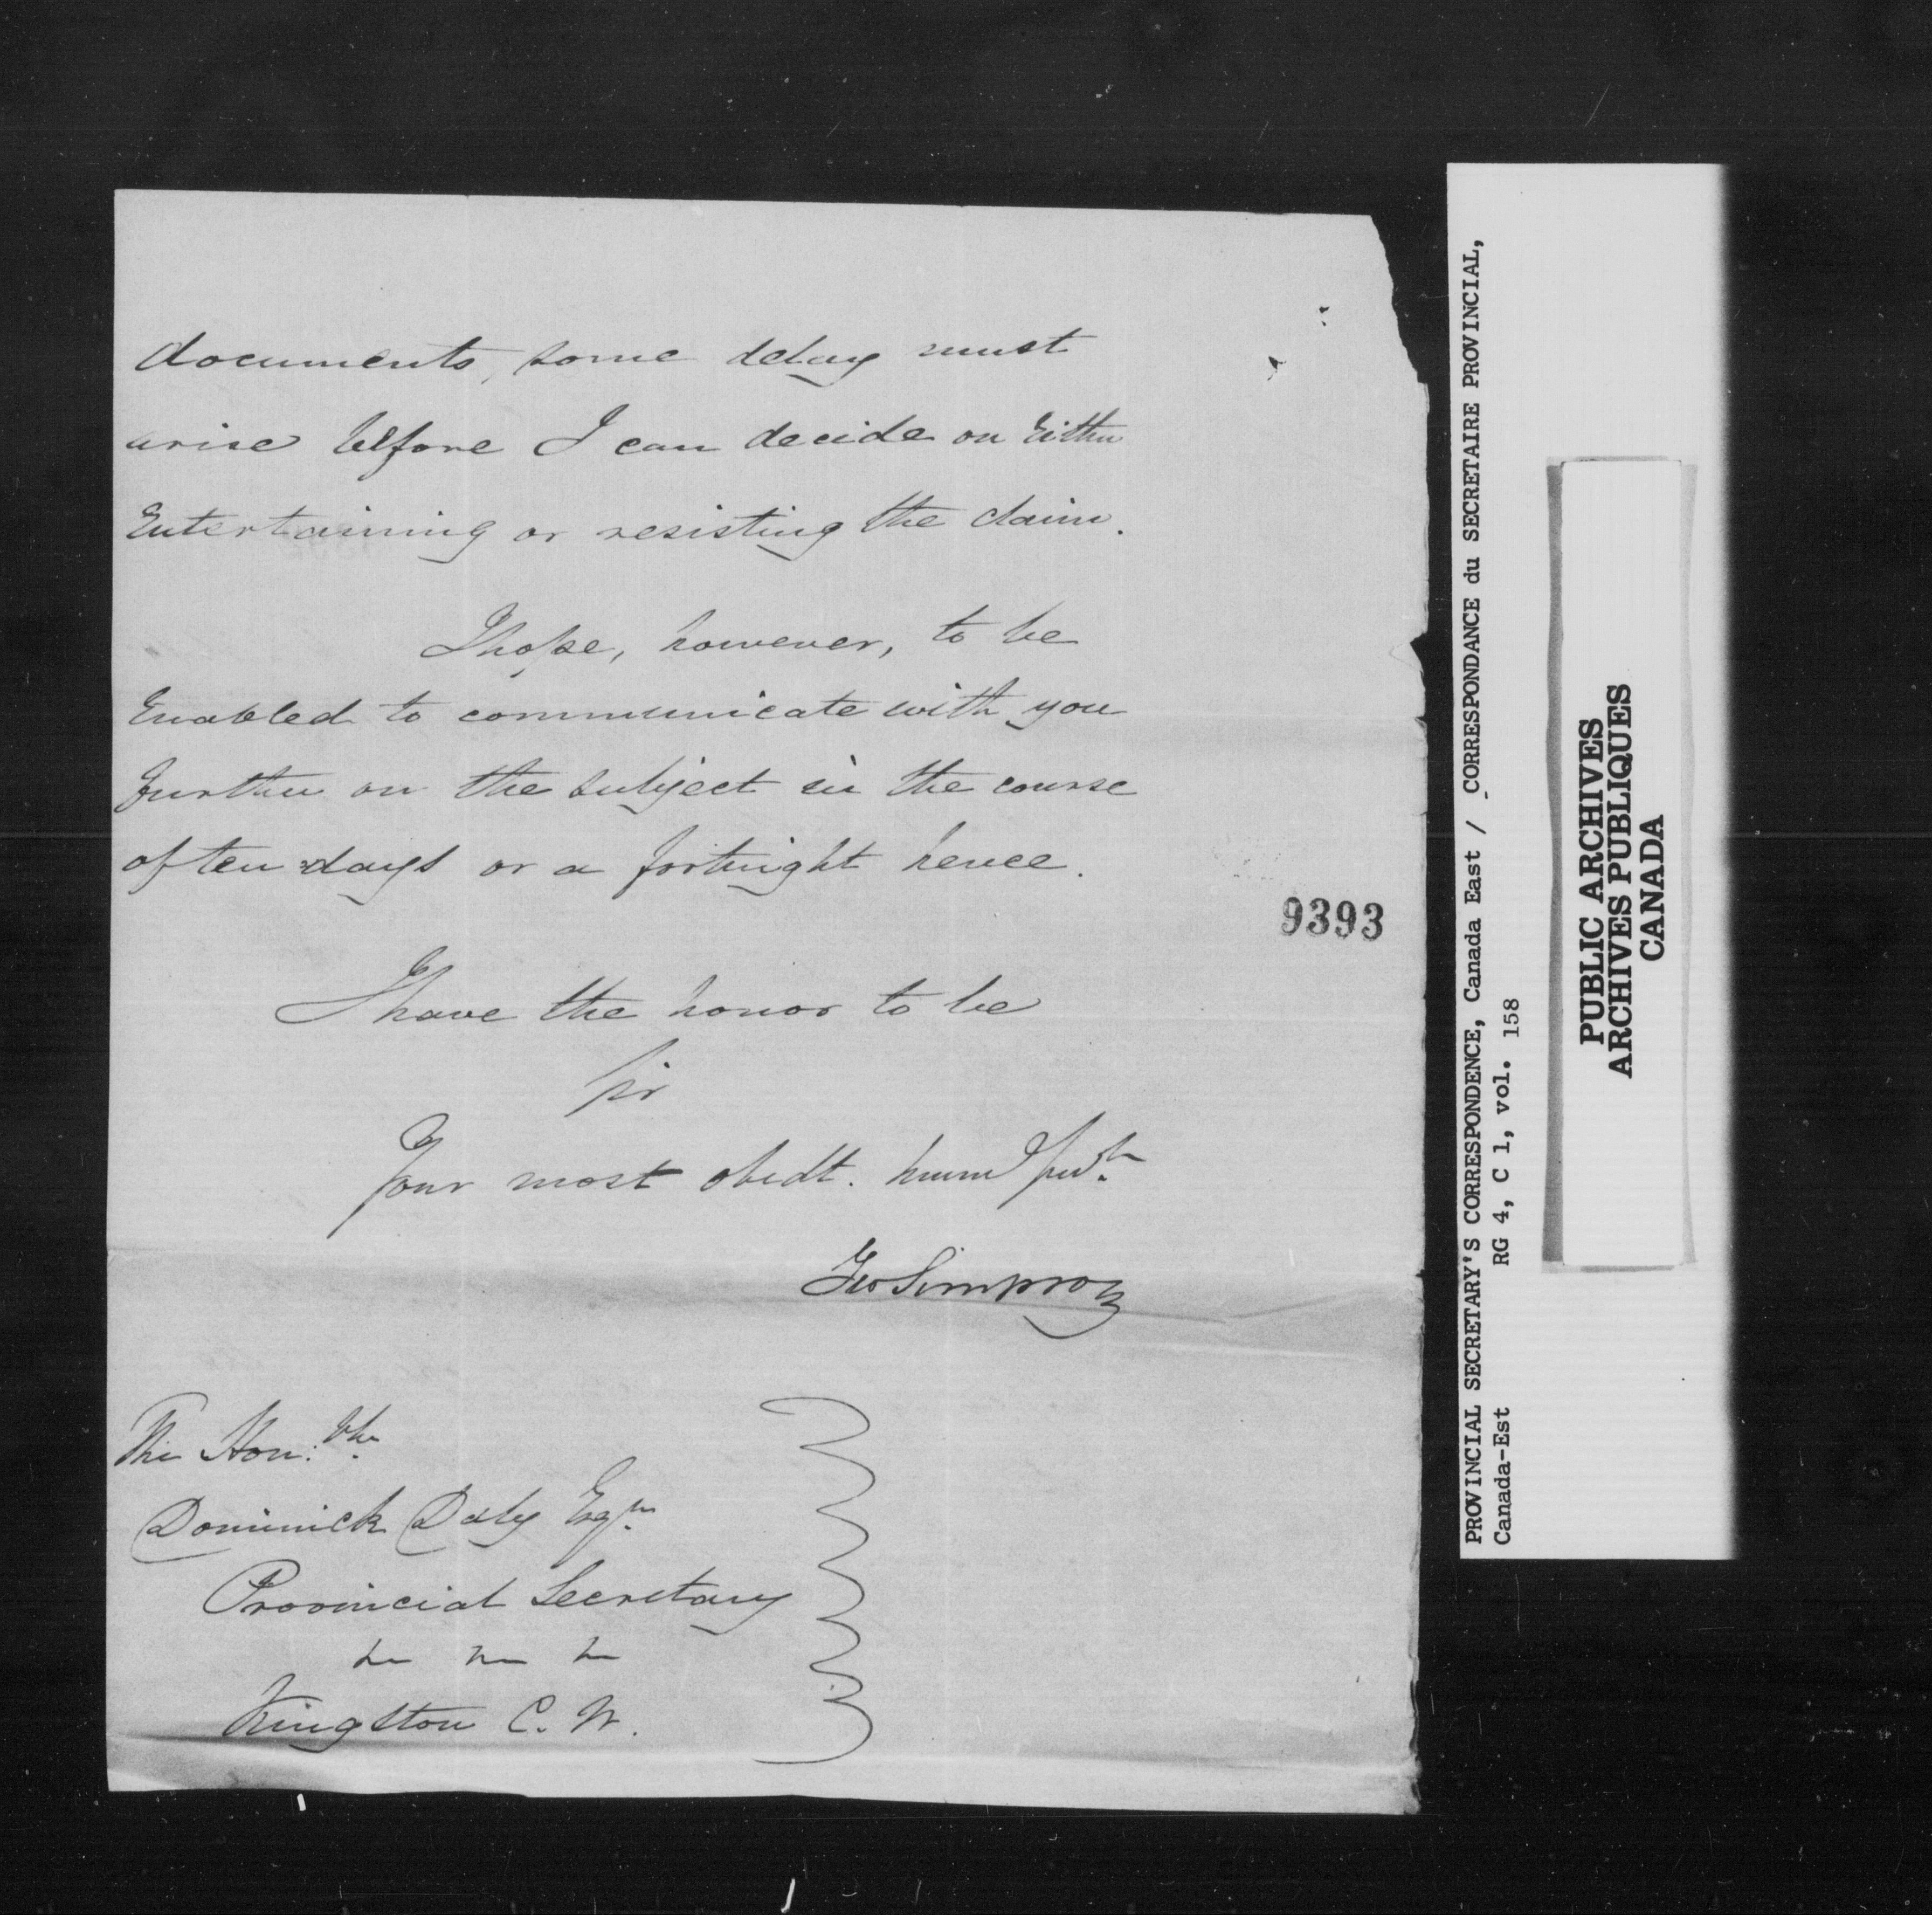 documents, some delay must
arise before I can decide on Either
Entertaining or resisting the claim.
I hope, however, to be
Enabled to communicate with you
further on the subject in the course
of ten days or a fortnight hence.
9393
I have the honor to be
Sir
Your most obedt. huml Servt
Geo Simpson
The Hon:ble
Dominick Daly Esqre
Provincial Secretary
Kingston C. W.
PROVINCIAL SECRETARY'S CORRESPONDENCE, Canada East / CORRESPONDANCE du SECRETAIRE PROVINCIAL,
Canada-Est RG 4, C 1, vol. 158
PUBLIC ARCHIVES
ARCHIVES PUBLIQUES
CANADA